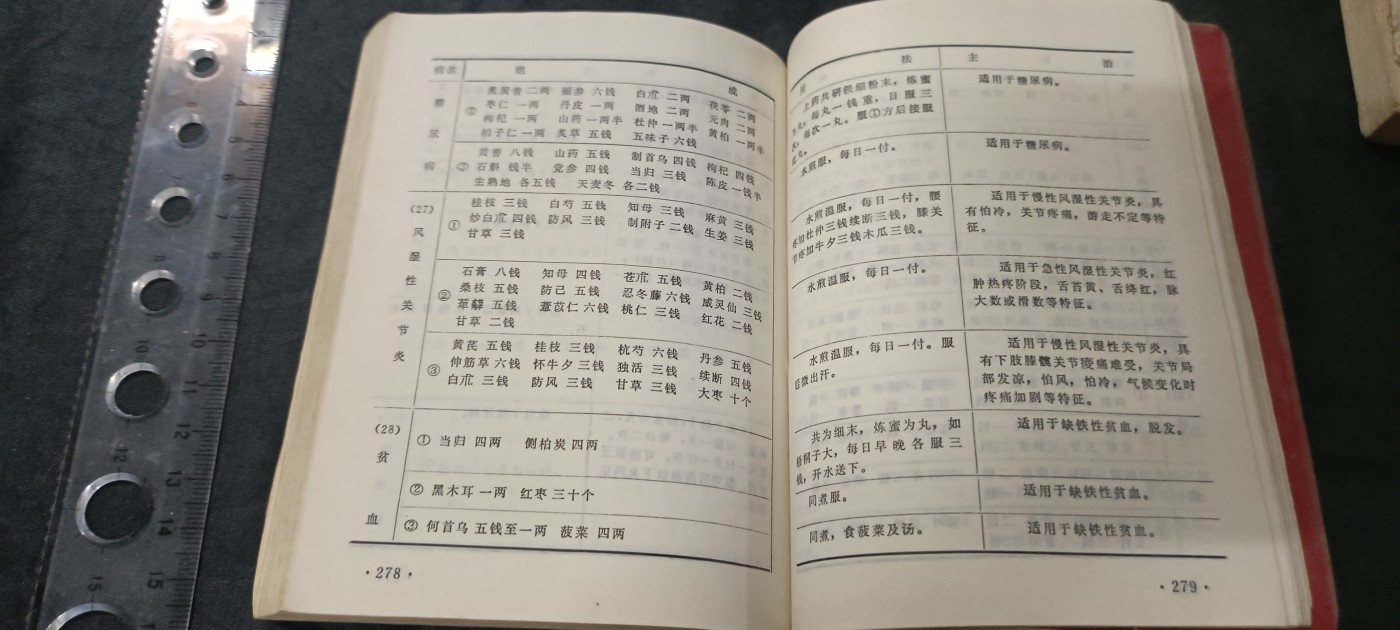 病名 组 成
糖尿病
炙黄耆 二两 丽参 六钱 白朮 二两 茯苓 二两
② 枣仁 一两 丹皮 一两 酒地 二两 元肉 二两
枸杞 一两 山药 一两半 杜仲 一两半 黄柏 一两半
柏子仁 一两 炙草 五钱 五味子 六钱
黄耆 八钱 山药 五钱 制首乌 四钱 枸杞 四钱
② 石斛 钱半 党参 四钱 当归 三钱 陈皮 一钱半
生熟地 各五钱 天麦冬 各二钱
(27)
风湿性关节炎
桂枝 三钱 白芍 五钱 知母 三钱 麻黄 三钱
① 炒白朮 四钱 防风 三钱 制附子 二钱 生姜 三钱
甘草 三钱
石膏 八钱 知母 四钱 苍朮 五钱 黄柏 二钱
② 桑枝 五钱 防己 五钱 忍冬藤 六钱 威灵仙 三钱
萆薢 五钱 薏苡仁 六钱 桃仁 三钱 红花 二钱
甘草 二钱
黄芪 五钱 桂枝 三钱 杭芍 六钱 丹参 五钱
③ 伸筋草 六钱 怀牛夕 三钱 独活 三钱 续断 四钱
白朮 三钱 防风 三钱 甘草 三钱 大枣 十个
(28)
贫血
① 当归 四两 侧柏炭 四两
② 黑木耳 一两 红枣 三十个
③ 何首乌 五钱至一两 菠菜 四两
·278·
法 主 治
上药共研极细粉末，炼蜜
为丸，每丸一钱重，日服三
次，每次一丸。服①方后接服
丸。
适用于糖尿病。
水煎服，每日一付。
适用于糖尿病。
水煎温服，每日一付，腰
疼加杜仲三钱续断三钱，膝关
节疼加牛夕三钱木瓜三钱。
适用于慢性风湿性关节炎，具
有怕冷，关节疼痛，游走不定等特
征。
水煎温服，每日一付。
适用于急性风湿性关节炎，红
肿热疼阶段，舌苔黄、舌绛红，脉
大数或滑数等特征。
水煎温服，每日一付。服
后微出汗。
适用于慢性风湿性关节炎，具
有下肢膝髋关节痠痛难受，关节局
部发凉，怕风，怕冷，气候变化时
疼痛加剧等特征。
共为细末，炼蜜为丸，如
梧桐子大，每日早晚各服三
钱，开水送下。
适用于缺铁性贫血，脱发。
同煮服。
适用于缺铁性贫血。
同煮，食菠菜及汤。
适用于缺铁性贫血。
·279·
5
6
7
8
8
9
10
10
11
12
12
13
14
15
15